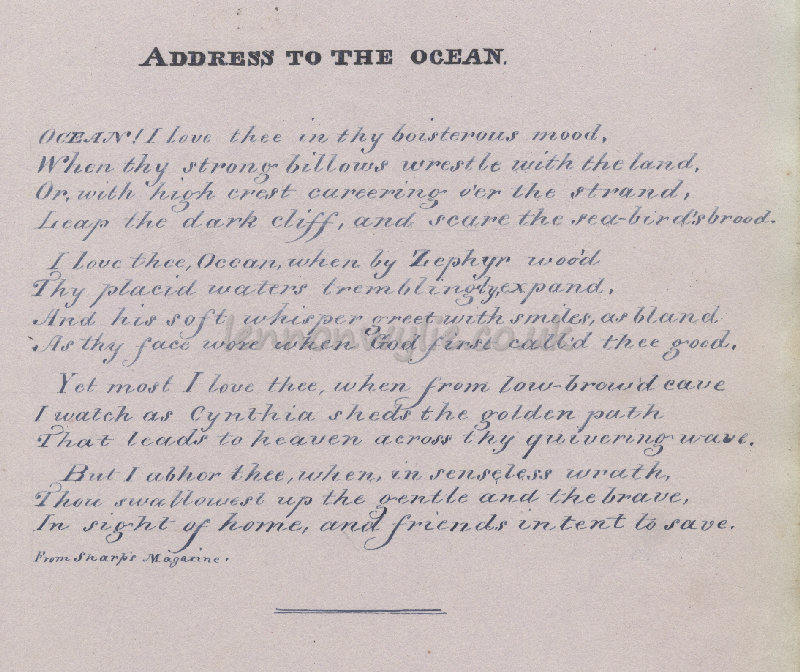 ADDRESS TO THE OCEAN.
OCEAN! I love thee in thy boisterous mood,
When thy strong billows wrestle with the land,
Or, with high crest careering o'er the strand,
Leap the dark cliff, and scare the sea-bird's brood.
I love thee, Ocean, when by Zephyr woo'd
Thy placid waters tremblingly expand,
And his soft whisper greet with smiles, as bland
As thy face wore when God first call'd thee good.
Yet most I love thee, when from low-brow'd cave
I watch as Cynthia sheds the golden path
That leads to heaven across thy quivering wave.
But I abhor thee, when, in senseless wrath,
Thou swallowest up the gentle and the brave,
In sight of home, and friends intent to save.
From Sharp's Magazine.
lennonwylie.co.uk